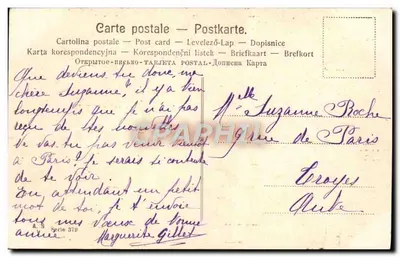 Carte postale – Postkarte.
Cartolina postale – Post card – Levelező-Lap – Dopisnice
Karta korespondencyjna – Korespondenční lístek – Briefkaart – Brefkort
Открытое-письмо-TARJETA POSTAL-Дописна Карта
Que deviens tu donc ma
chère Suzanne, il y a bien
longtemps que je n'ai pas
reçu de tes nouvelles
Ne vas tu pas venir
à Paris? je serais si contente
de te voir.
En attendant un petit
mot de toi, je t'envoie
tous mes vœux de bonne
année. Marguerite Gillet
Serie 319
Melle Suzanne Roche
rue de Paris
Troyes
Aube